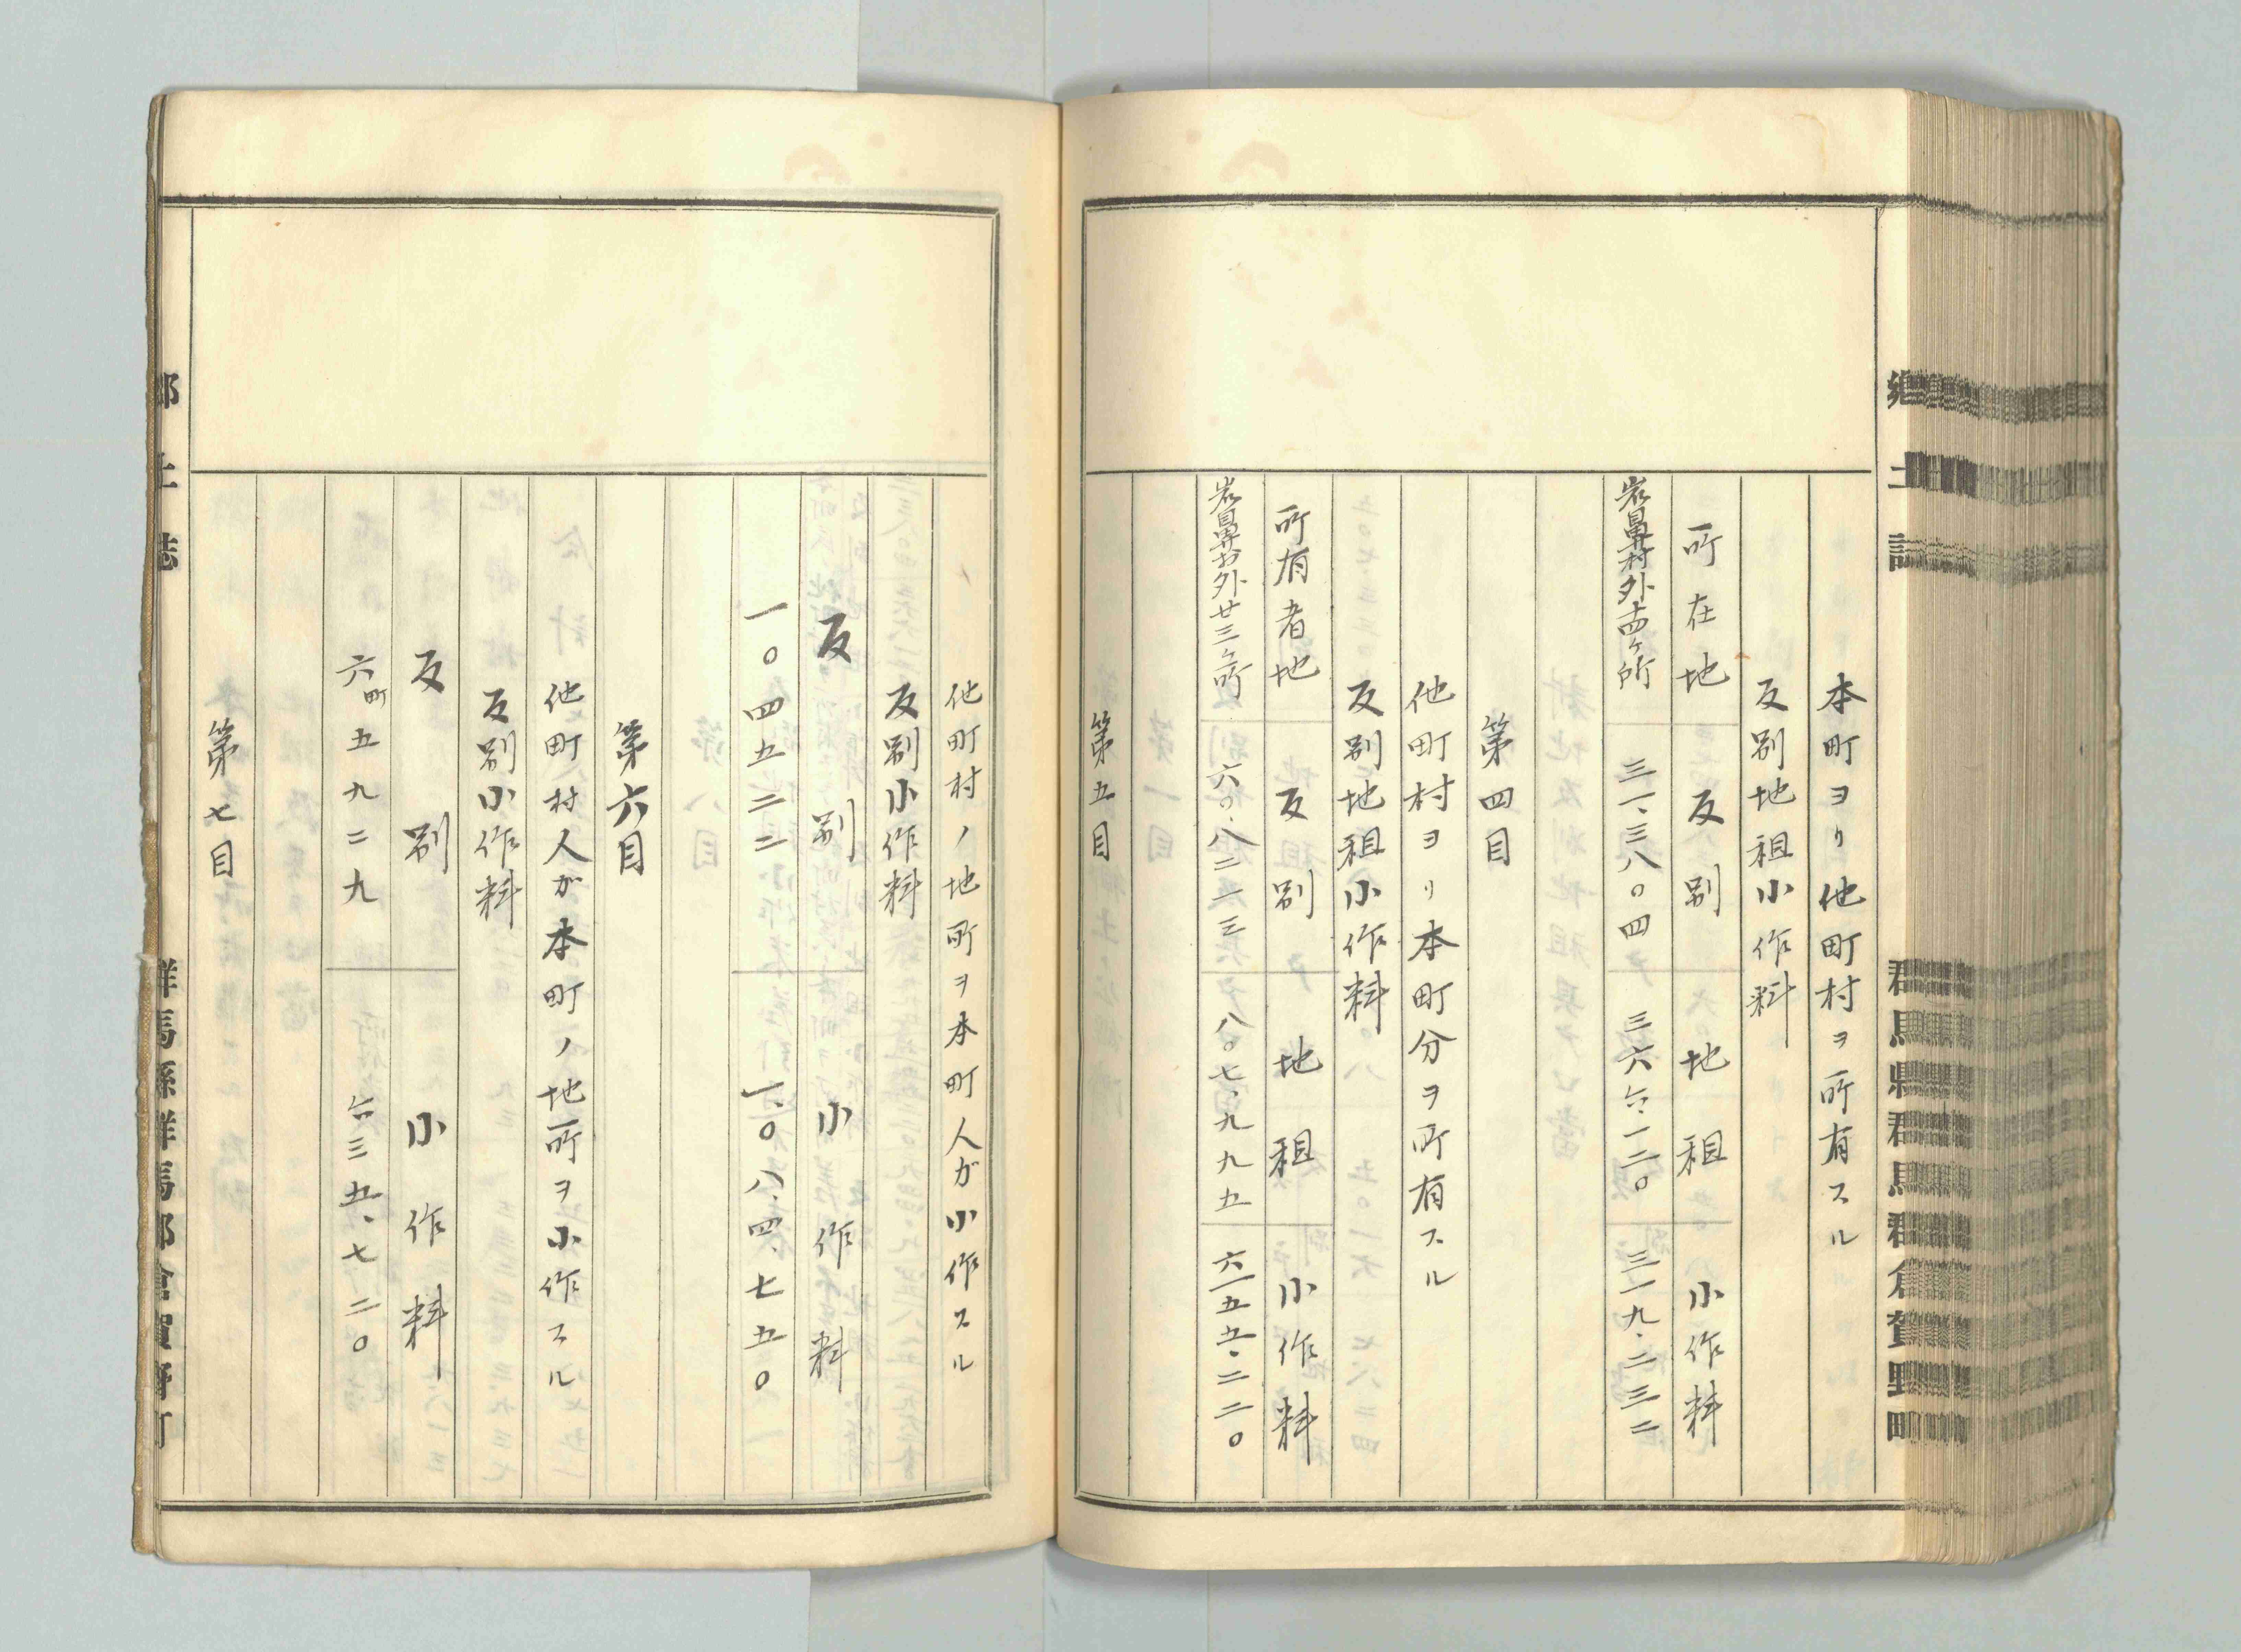 郷土誌
群馬縣群馬郡倉賀野町
本町ヨリ他町村ヲ所有スル
反別地租小作料
所在地 反別 地租 小作料
岩鼻村外十四ヶ所 三一、三八〇四 三六六、一二〇 三一九、二三二
第四目
他町村ヨリ本町分ヲ所有スル
反別地租小作料
所有者地 反別 地租 小作料
岩鼻村外廿三ヶ所 六〇、八二一三 八〇七、九九五 六一五五、二二〇
第五目
他町村ノ地所ヲ本町人ガ小作スル
反別小作料
反別 小作料
一〇四五二二 一、〇八四、七五〇
第六目
他町村人ガ本町ノ地所ヲ小作スル
反別小作料
反別 小作料
六町五九二九 六三五、七二〇
第七目
郷土誌
群馬縣群馬郡倉賀野町